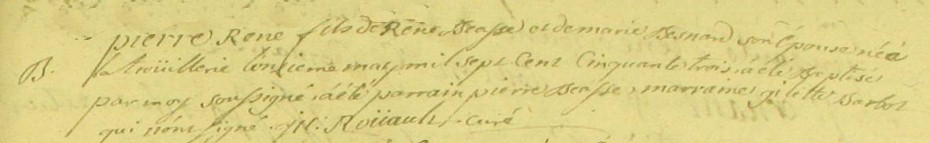 pierre René fils de René Seasse et de marie Besnard son épouse né a
B. la troüillerie l'onzieme may mil sept Cent Cinquante trois a été Baptisé
par moy soussigné a été parrain pierre Seasse, marraine gilette Barbot
qui n'ont signé. J H: Roüault curé